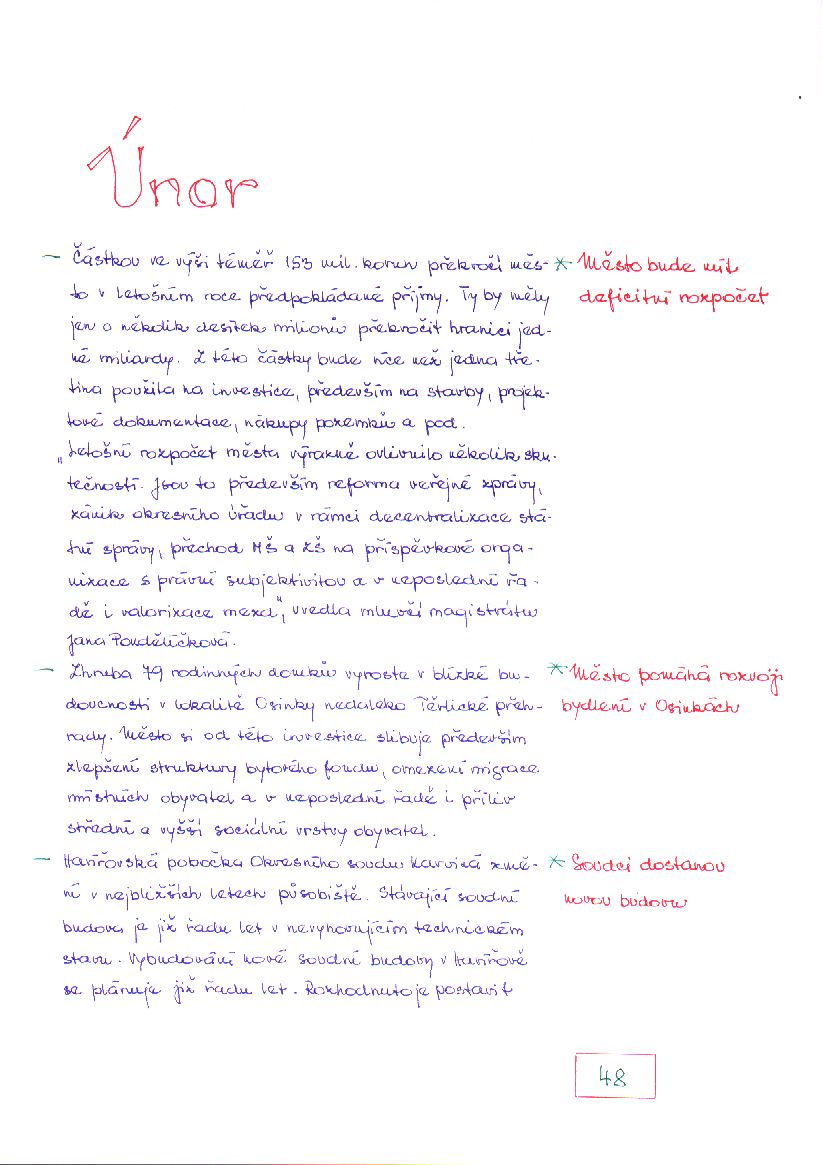 Únor
— Částkou ve výši téměř 153 mil. korun překročí měs-
to v letošním roce předpokládané příjmy. Ty by měly
jen o několik desítek milionů překročit hranici jed-
né miliardy. Z této částky bude více než jedna tře-
tina použita na investice, především na stavby, projek-
tové dokumentace, nákupy pozemků a pod.
„Letošní rozpočet města výrazně ovlivnilo několik sku-
tečností. Jsou to především reforma veřejné zprávy,
zánik okresního úřadu v rámci decentralizace stá-
tní správy, přechod MŠ a ZŠ na příspěvkové orga-
nizace s právní subjektivitou a v neposlední řa-
dě i valorizace mezd", uvedla mluvčí magistrátu
Jana Pondělíčková.
— Zhruba 79 rodinných domků vyroste v blízké bu-
doucnosti v lokalitě Osinky nedaleko Těrlické přeh-
rady. Město si od této investice slibuje především
zlepšení struktury bytového fondu, omezení migrace
místních obyvatel a v neposlední řadě i příliv
střední a vyšší sociální vrstvy obyvatel.
— Havířovská pobočka Okresního soudu Karviná změ-
ní v nejbližších letech působiště. Stávající soudní
budova je již řadu let v nevyhovujícím technickém
stavu. Vybudování nové soudní budovy v Havířově
se plánuje již řadu let. Rozhodnuto je postavit
* Město bude mít
deficitní rozpočet
* Město pomáhá rozvoji
bydlení v Osinkách
* Soudci dostanou
novou budovu
48